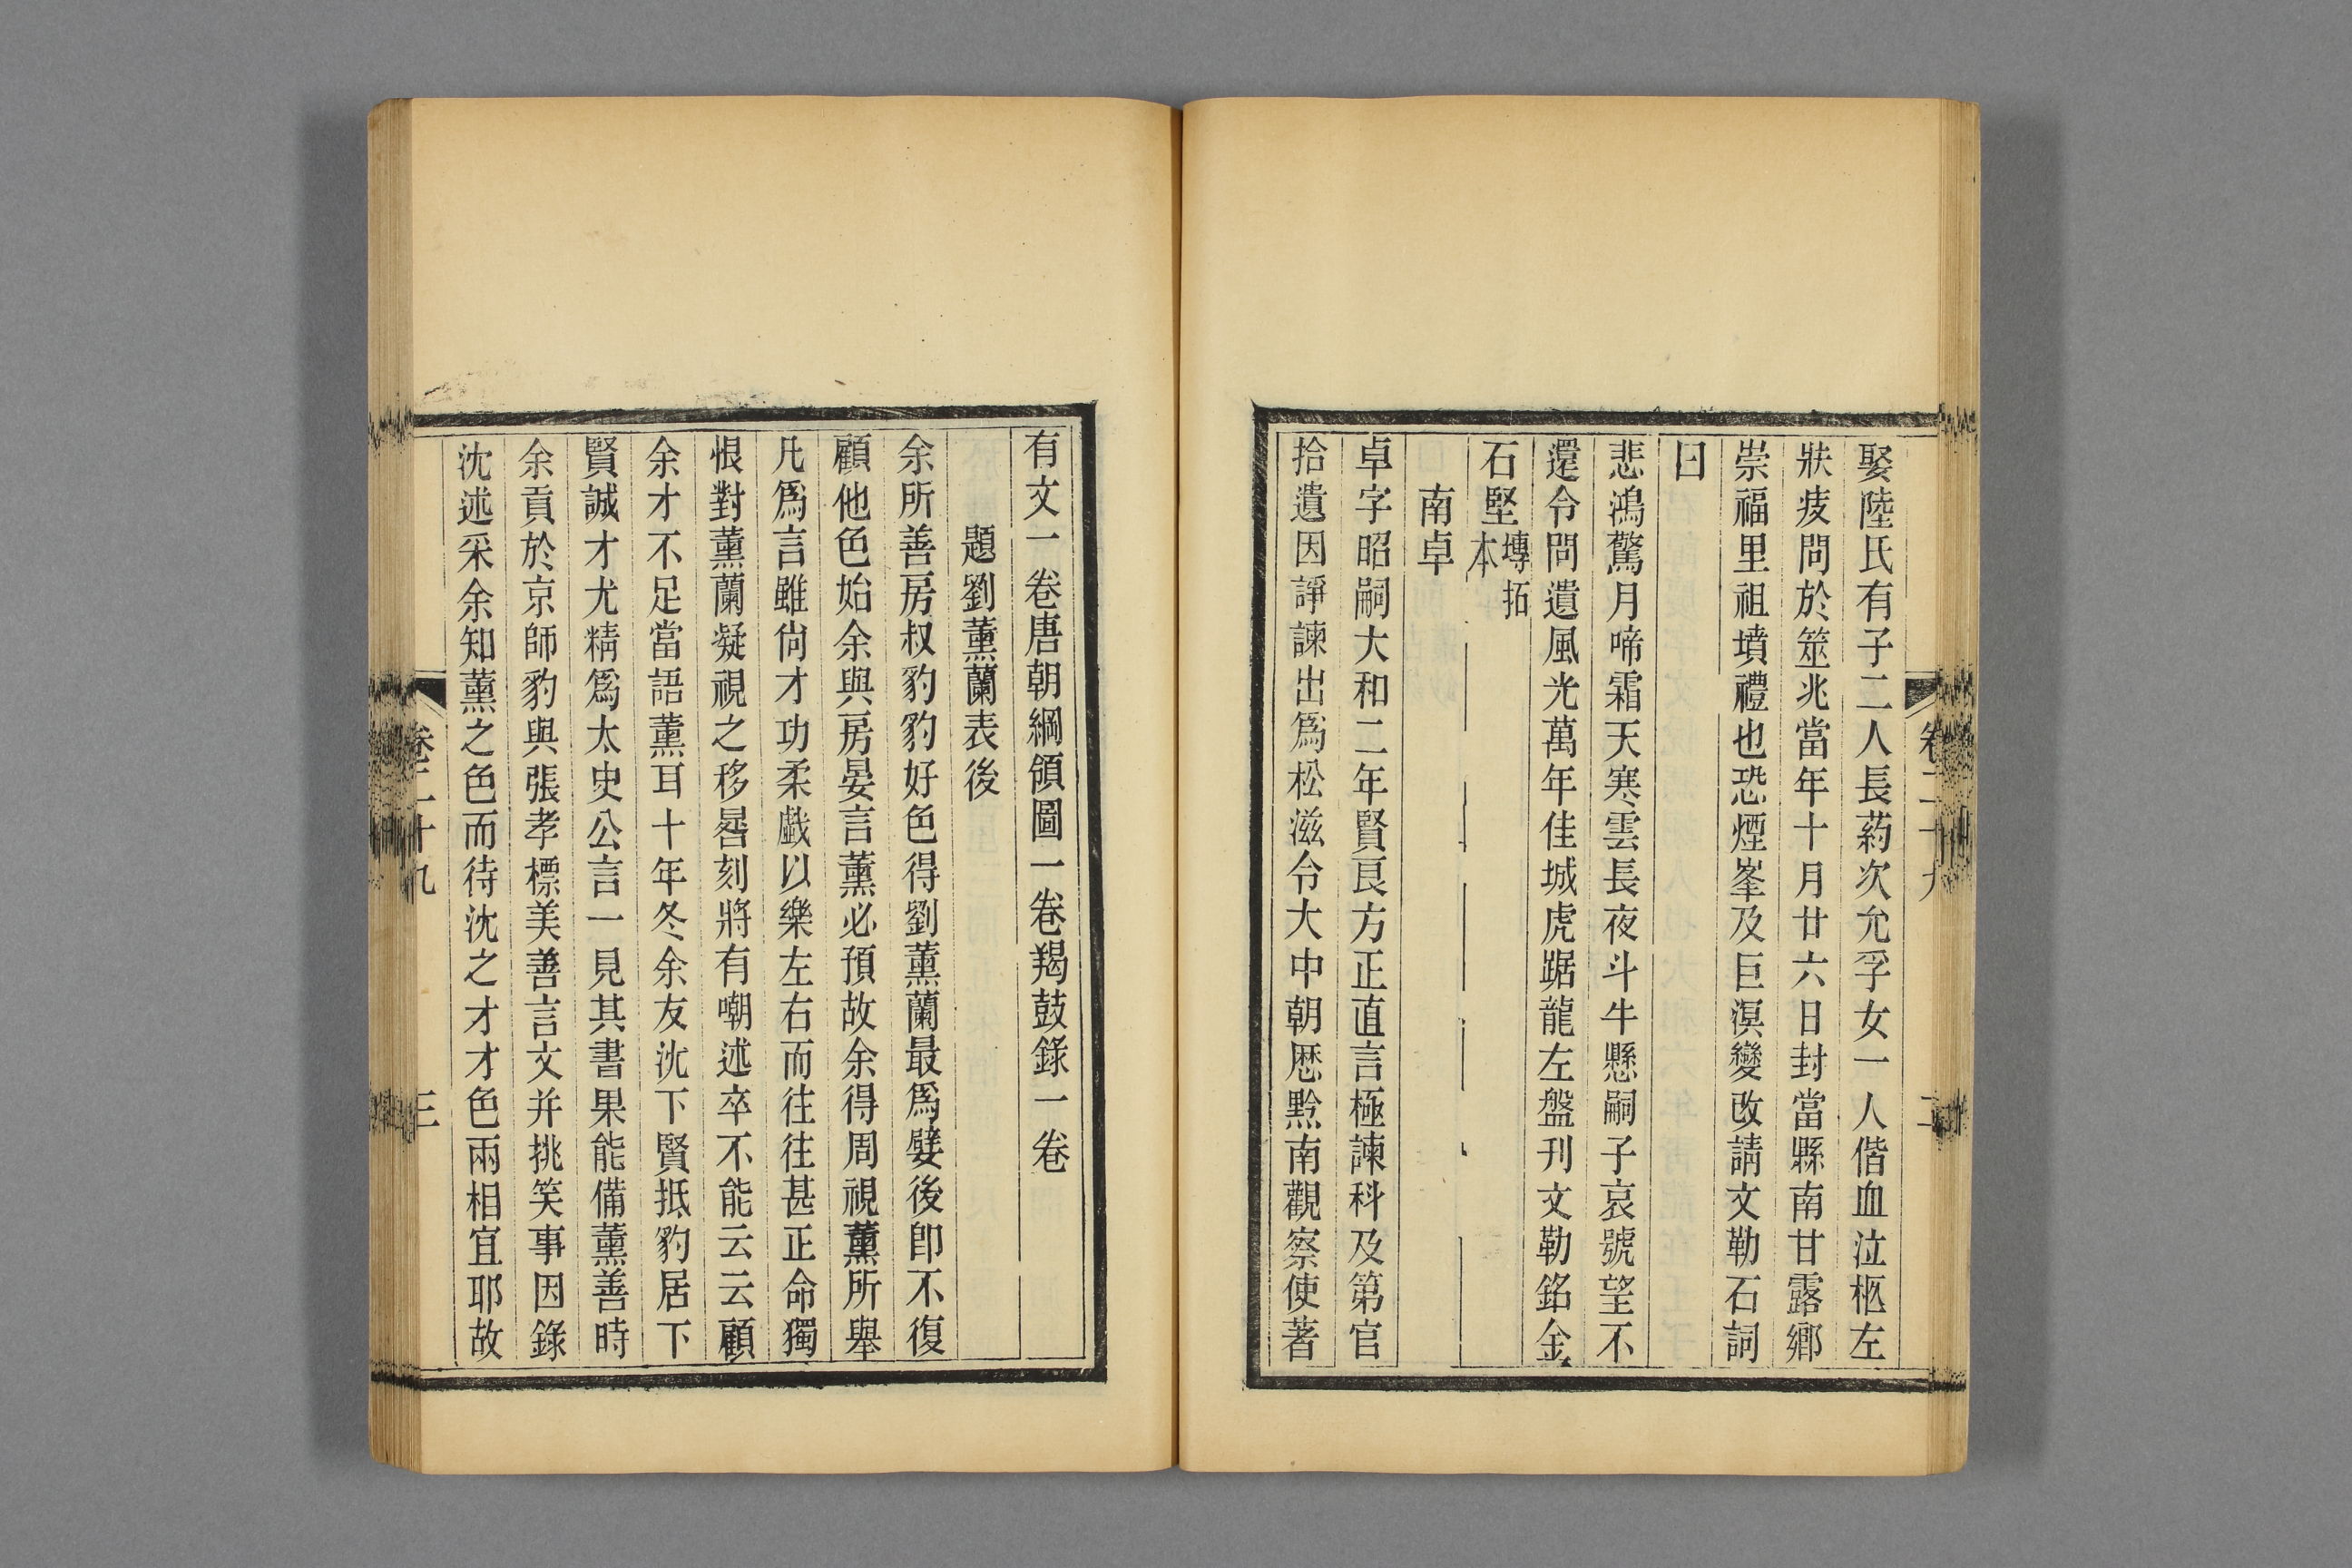 娶陸氏有子二人長葯次允孚女一人偕血泣柩左
狀疲問於筮兆當年十月廿六日封當縣南甘露鄉
崇福里祖墳禮也恐煙峯及巨溟變改請文勒石詞
曰
悲鴻驚月啼霜天寒雲長夜斗牛懸嗣子哀號望不
還令問遺風光萬年佳城虎踞龍左盤刊文勒銘金
石堅塼拓本
南卓
卓字昭嗣大和二年賢良方正直言極諫科及第官
拾遺因諍諫出爲松滋令大中朝歷黔南觀察使著
有文一卷唐朝綱領圖一卷羯鼓錄一卷
題劉薰蘭表後
余所善房叔豹豹好色得劉薰蘭最爲嬖後即不復
顧他色始余與房晏言薰必預故余得周視薰所舉
凡爲言雖尙才功柔戲以樂左右而往往甚正命獨
恨對薰蘭凝視之移晷刻將有嘲述卒不能云云顧
余才不足當語薰耳十年冬余友沈下賢抵豹居下
賢誠才尤精爲太史公言一見其書果能備薰善時
余貢於京師豹與張孝標美善言文并挑笑事因錄
沈述采余知薰之色而待沈之才才色兩相宜耶故
卷二十九
三